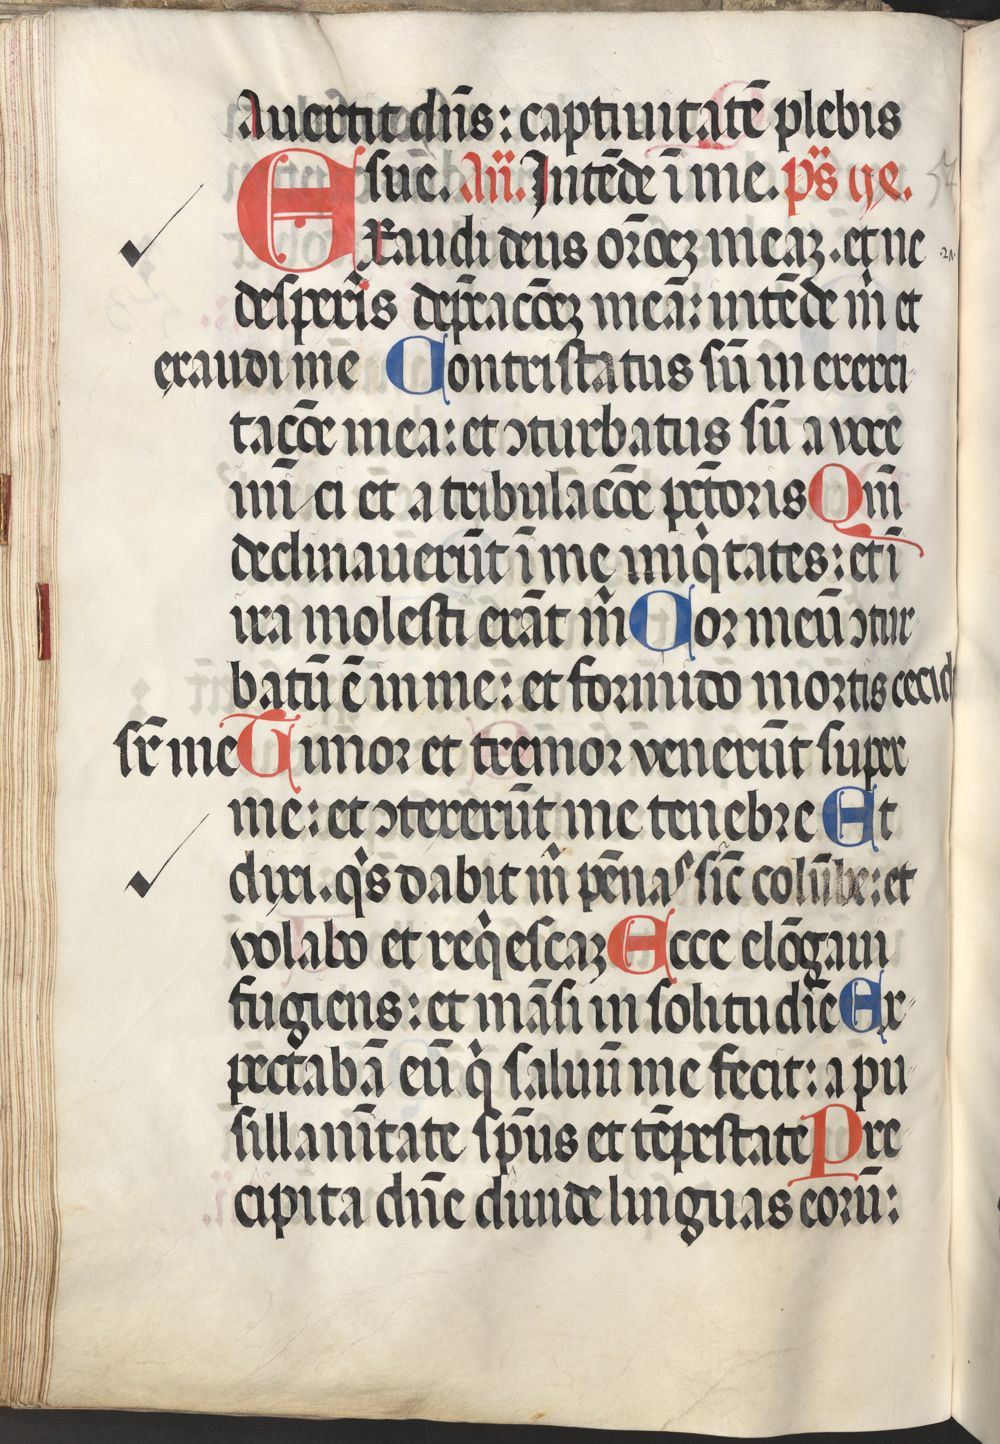 Auertit dn̄s: captiuitatē plebis
sue. An̄. Intēde ī me. p̄s ye.
Exaudi deus orōeꝫ meaꝫ. et ne
despexis dep̄cacōeꝫ meā: intēde m̄ et
exaudi me Contristatus sū in exerci
tacōe mea: et ꝯturbatus sū a uoce
inīmici et a tribulacōe pc̄toris Qm̄
declinauerūt ī me iniqͥtates: et ī
ira molesti erāt m̄ Cor meū ꝯtur
batū ē in me: et formido mortis cecid
sr̄ me Timor et tremor venerūt super
me: et ꝯtexerūt me tenebre Et
dixi. qͥs dabit m̄ pēnas sic̄ colūbe: et
volabo et reqͥescaꝫ Ecce elōgaui
fugiens: et māsi in solitudīe Ex
pectabā eū qͥ saluū me fecit: a pu
sillanītate sp̄us et tēpestate Pre
cipita dn̄e diuide linguas eorū: